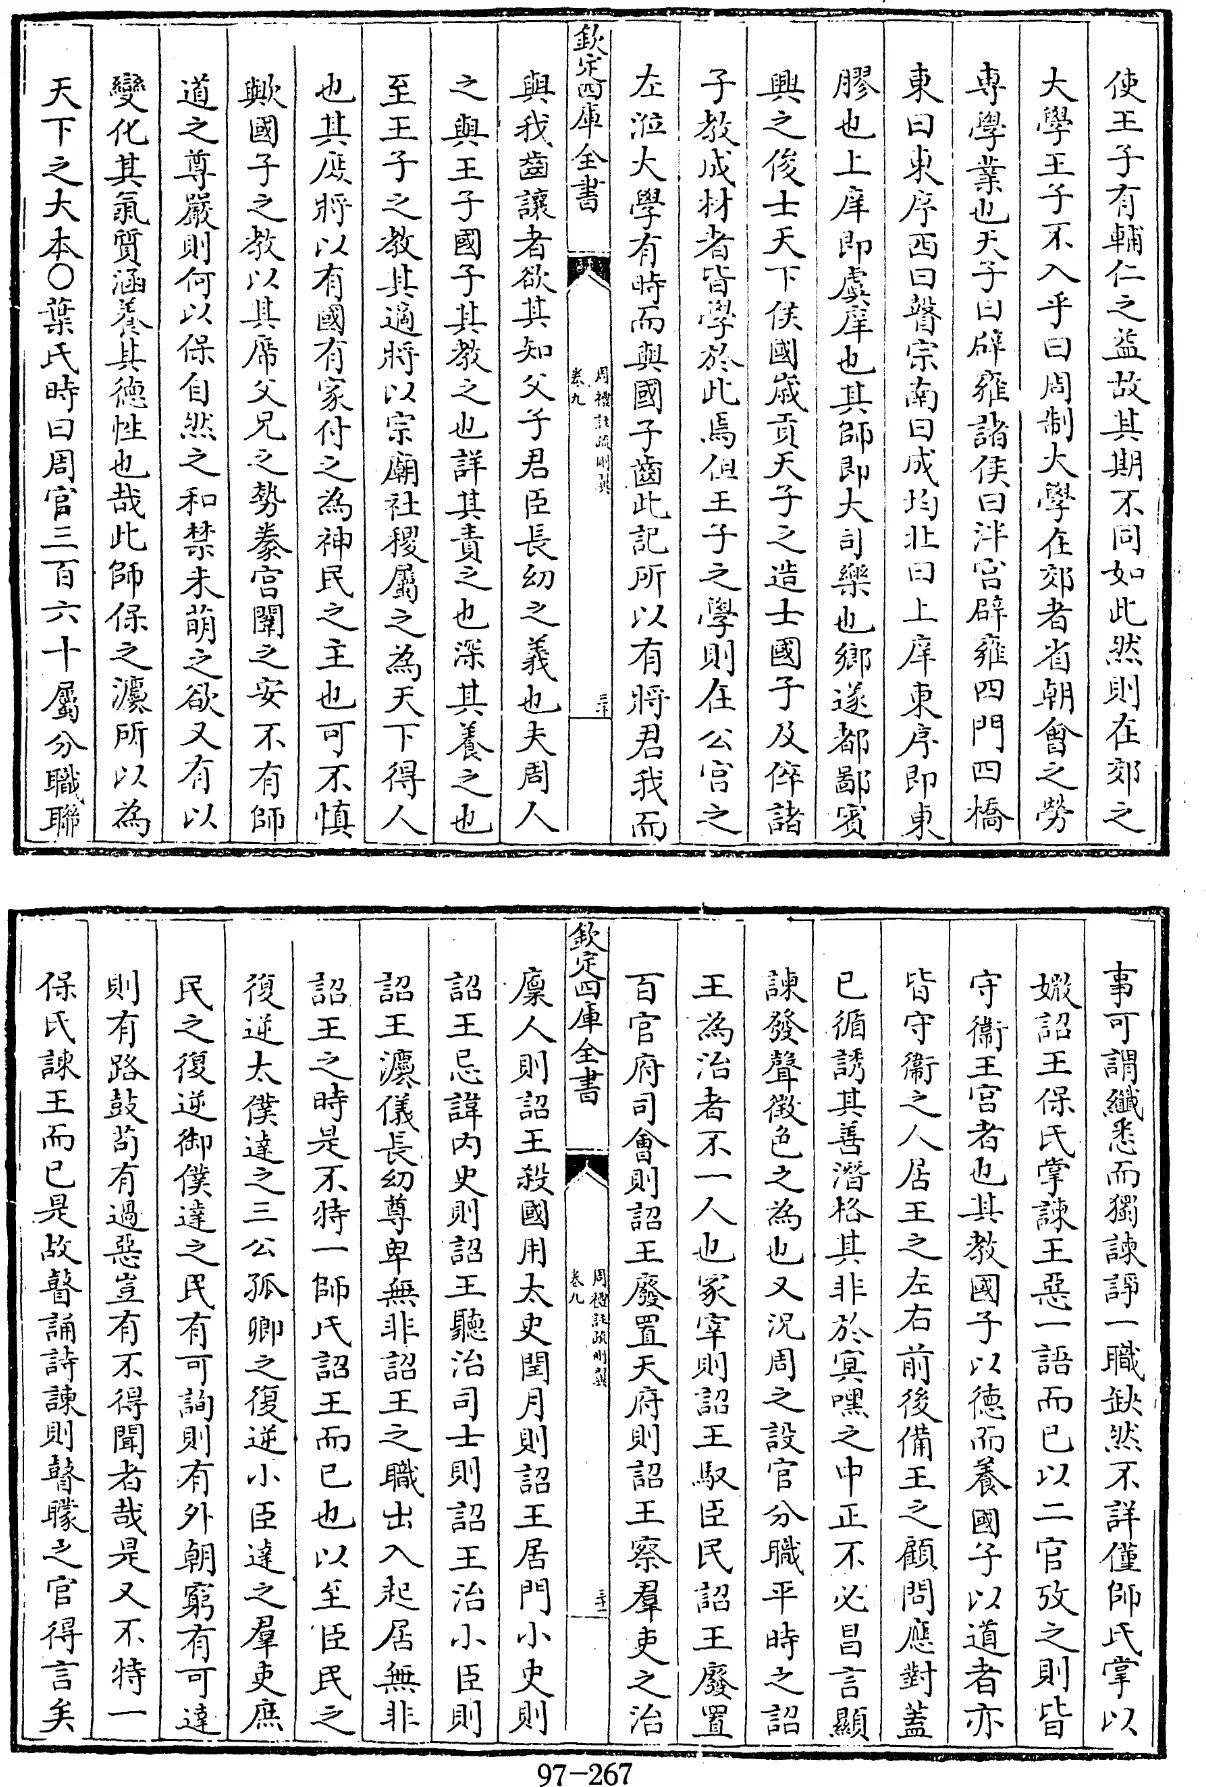 使王子有輔仁之益故其期不同如此然則在郊之
大學王子不入乎曰周制大學在郊者省朝會之勞
專學業也天子曰辟雍諸侯曰泮宮辟雍四門四橋
東曰東序西曰瞽宗南曰成均北曰上庠東序即東
膠也上庠即虞庠也其師即大司樂也鄉遂都鄙賓
興之俊士天下侯國歲貢天子之造士國子及倅諸
子教成材者皆學於此焉但王子之學則在公宮之
左涖大學有時而與國子齒此記所以有將君我而
欽定四庫全書
周禮註疏刪翼
卷九
三十
與我齒讓者欲其知父子君臣長幼之義也夫周人
之與王子國子其教之也詳其責之也深其養之也
至王子之教其適將以宗廟社稷屬之為天下得人
也其庶將以有國有家付之為神民之主也可不慎
歟國子之教以其席父兄之勢豢宮闈之安不有師
道之尊嚴則何以保自然之和禁未萌之欲又有以
變化其氣質涵養其德性也哉此師保之灋所以為
天下之大本○葉氏時曰周官三百六十屬分職聯
事可謂纖悉而獨諫諍一職缺然不詳僅師氏掌以
媺詔王保氏掌諫王惡一語而已以二官攷之則皆
守衞王宮者也其教國子以德而養國子以道者亦
皆守衞之人居王之左右前後備王之顧問應對蓋
已循誘其善潛格其非於冥嘿之中正不必昌言顯
諫發聲徵色之為也又況周之設官分職平時之詔
王為治者不一人也冢宰則詔王馭臣民詔王廢置
百官府司會則詔王廢置天府則詔王察羣吏之治
欽定四庫全書
周禮註疏刪翼
卷九
三十一
廩人則詔王殺國用太史閏月則詔王居門小史則
詔王忌諱內史則詔王聽治司士則詔王治小臣則
詔王灋儀長幼尊卑無非詔王之職出入起居無非
詔王之時是不特一師氏詔王而已也以至臣民之
復逆太僕達之三公孤卿之復逆小臣達之羣吏庶
民之復逆御僕達之民有可詢則有外朝窮有可達
則有路鼓茍有過惡豈有不得聞者哉是又不特一
保氏諫王而已是故瞽誦詩諫則瞽矇之官得言矣
97-267